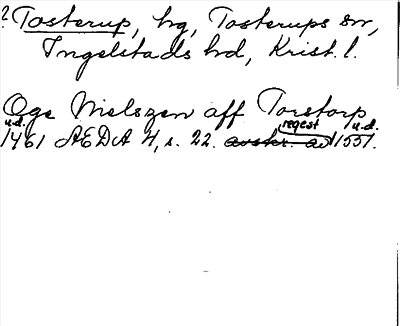 ? Tosterup, hg, Tosterups sn,
Ingelstads hd, Krist. l.
Oge Nielszen aff Torstorp
u.d. regest u.d.
1461 AEDA 4, s. 22. avskr. av 1551.